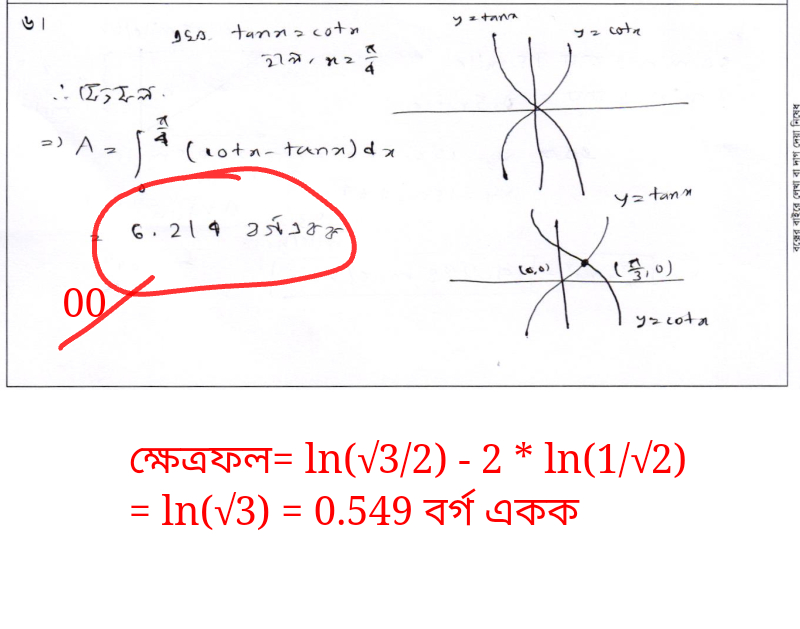 ৬।
এখন, tanx = cotx
হলে, x = π/4
y = tanx
y = cotx
∴ ক্ষেত্রফল.
=> A = ∫₀^(π/4) (cotx - tanx) dx
= 6.214 বর্গ একক
00
y = tanx
(0,0)
(π/3, 0)
y = cotx
বক্সের বাইরে লেখা বা দাগ দেয়া নিষেধ
ক্ষেত্রফল= ln(√3/2) - 2 * ln(1/√2)
= ln(√3) = 0.549 বর্গ একক